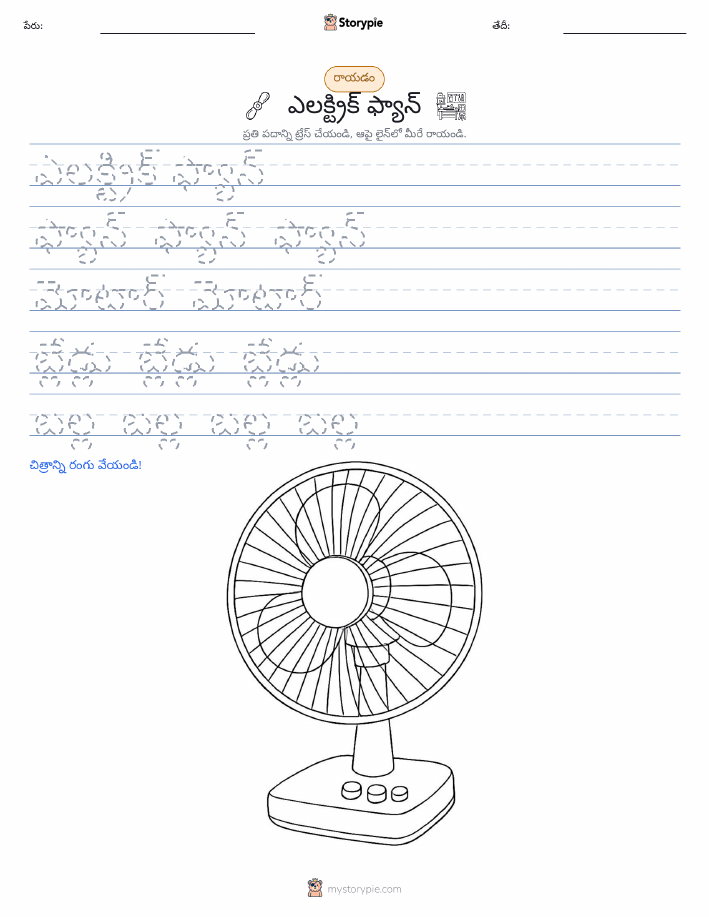 పేరు:
Storypie
తేదీ:
రాయడం
ఎలక్ట్రిక్ ఫ్యాన్
ప్రతి పదాన్ని ట్రేస్ చేయండి, ఆపై లైన్‌లో మీరే రాయండి.
ఎలక్ట్రిక్ ఫ్యాన్
ఫ్యాన్ ఫ్యాన్ ఫ్యాన్
మోటార్ మోటార్
బ్లేడ్లు బ్లేడ్లు బ్లేడ్లు
బల్ల బల్ల బల్ల బల్ల
చిత్రాన్ని రంగు వేయండి!
mystorypie.com